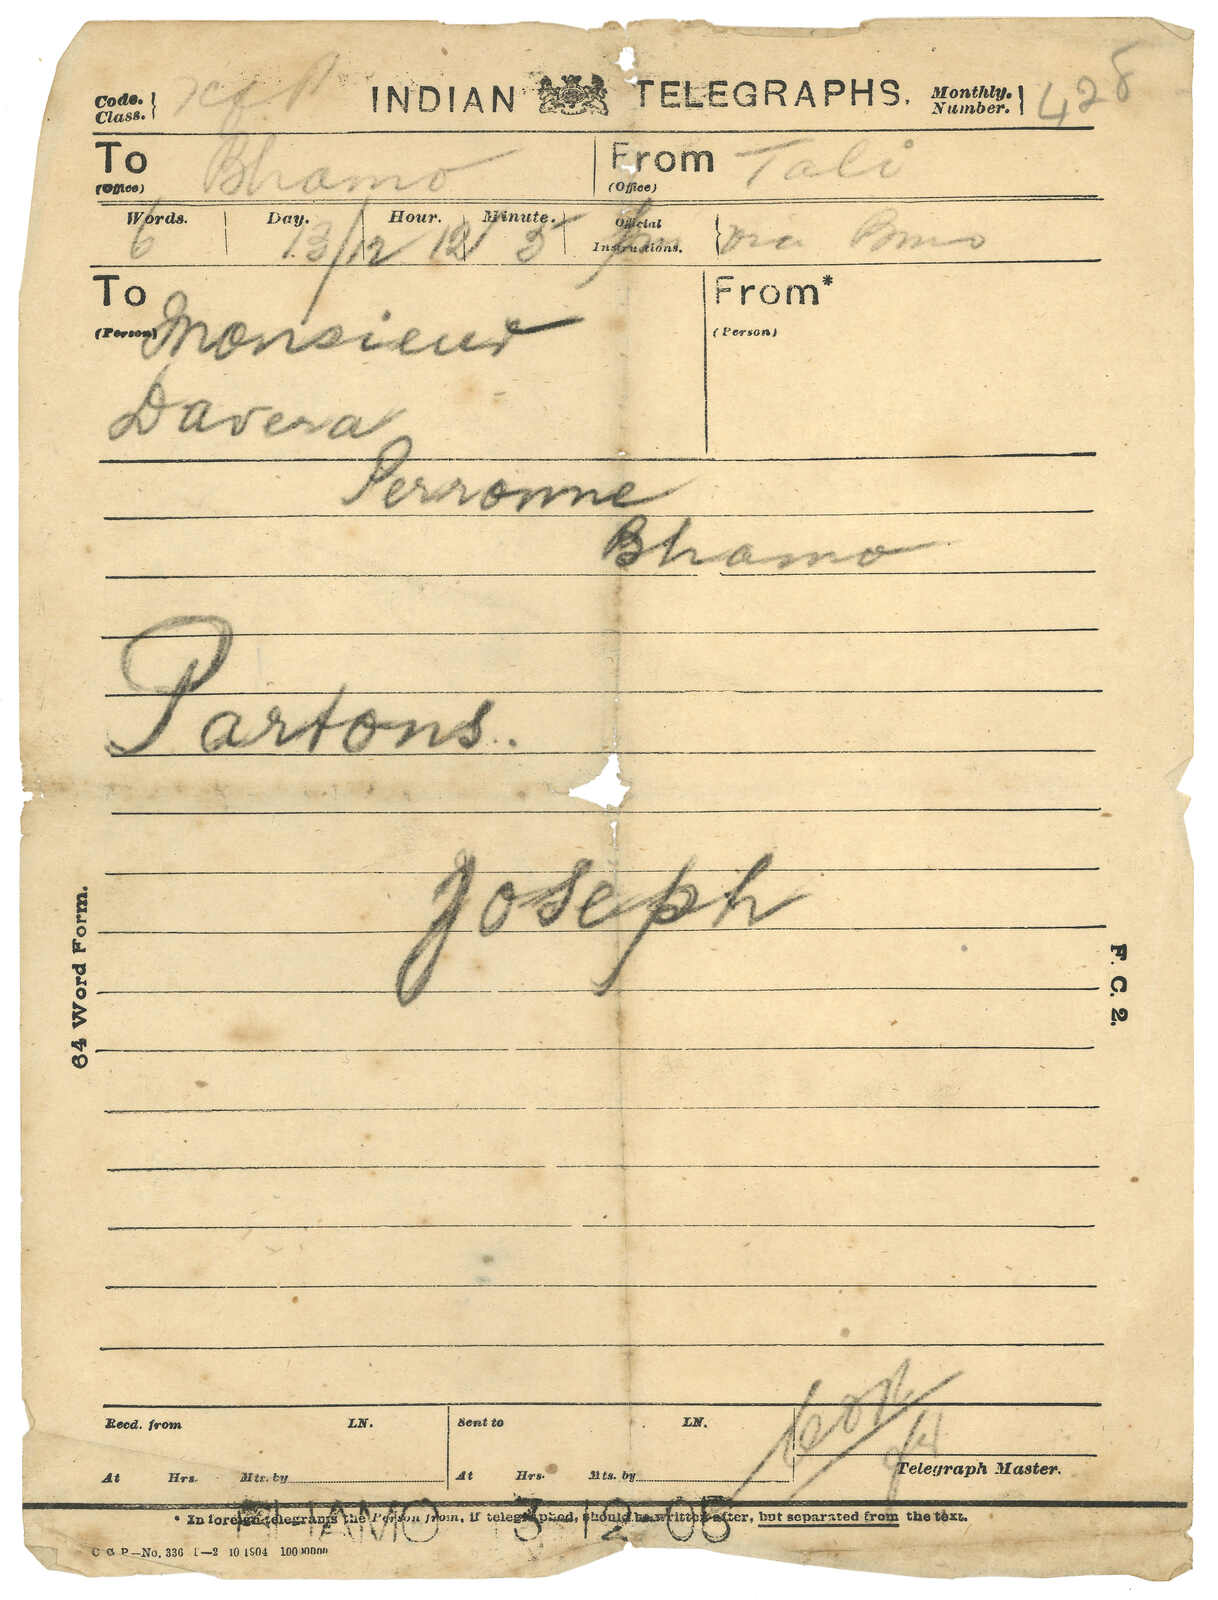 Code. Class. INDIAN TELEGRAPHS. Monthly. Number. 428
To (Office) Bhamo From (Office) Tali
Words. Day. Hour. Minute. Official Instructions.
6 13/12 12 5 via
To (Person) Monsieur From* (Person)
Davera
Perronne
Bhamo
Partons.
Joseph
64 Word Form.
F. C. 2.
Recd. from LN. Sent to LN.
At Hrs. Mts. by At Hrs. Mts. by Telegraph Master.
BHAMO 13 12 05
* In foreign telegrams the Person from, if telegraphed, should be written after, but separated from the text.
C G P—No. 336 10 1904